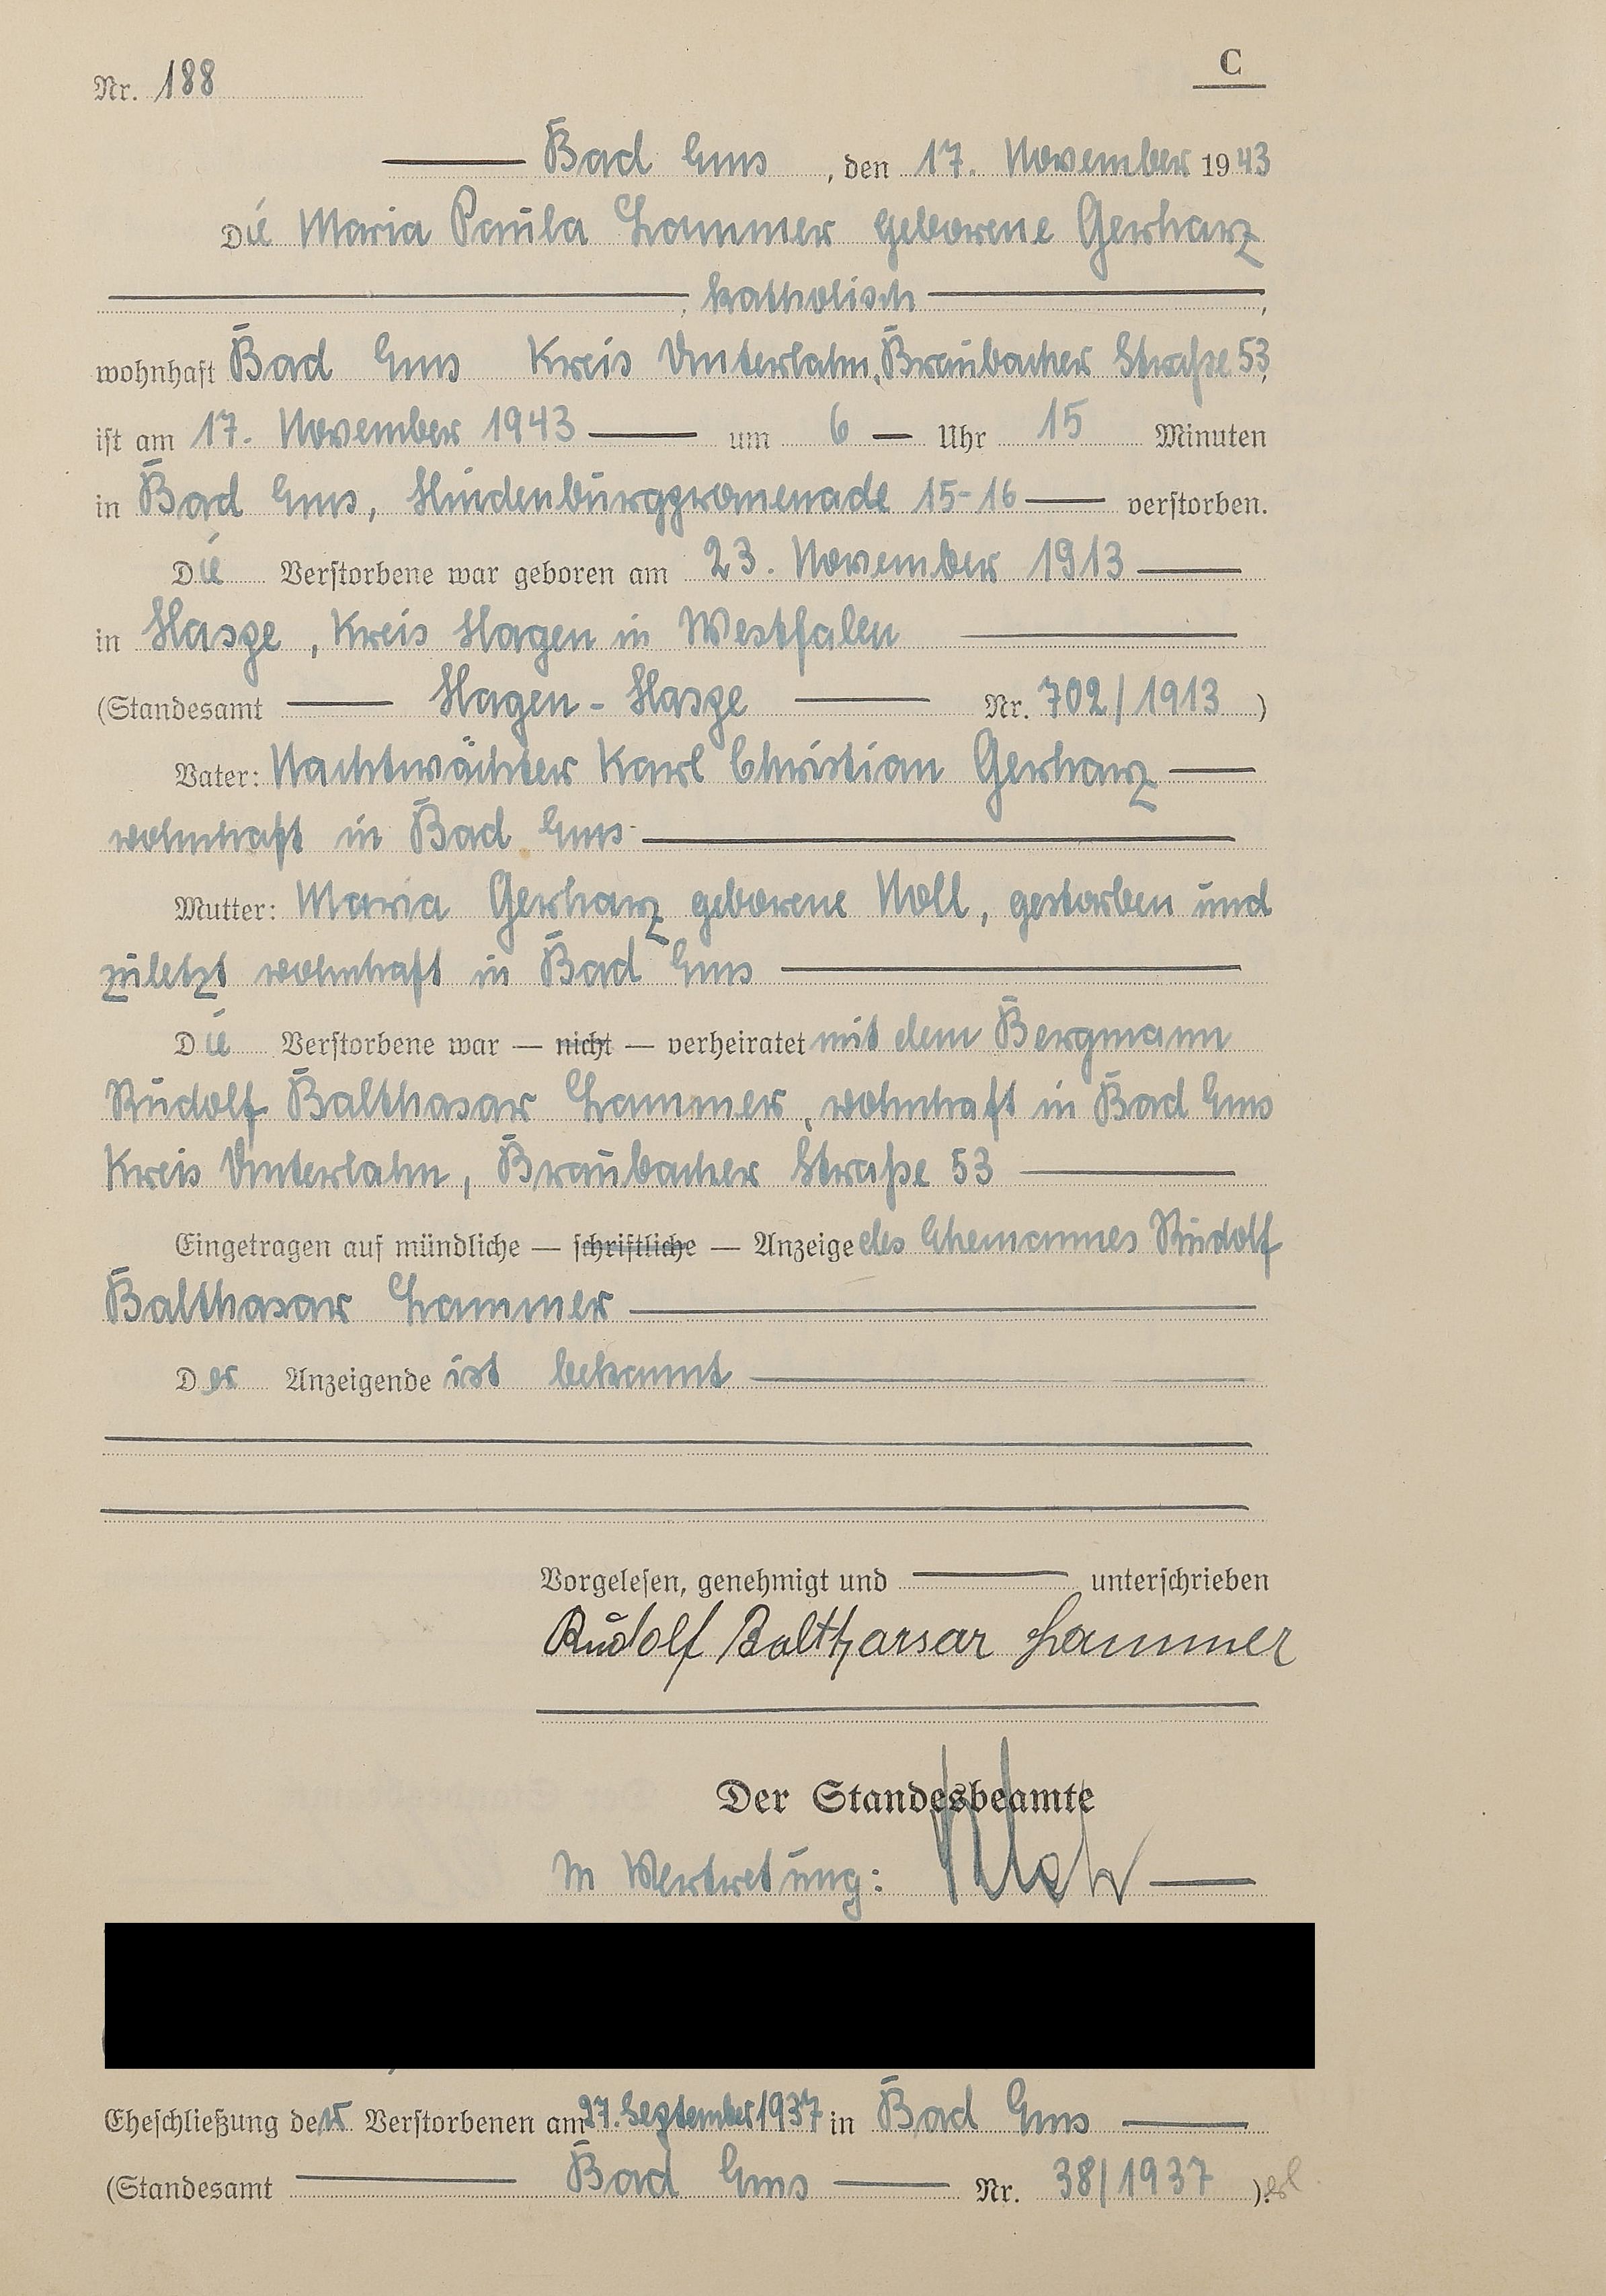 Nr. 188
C
Bad Ems, den 17. November 1943
Die Maria Paula Lammer geborene Gerharz
, katholisch,
wohnhaft Bad Ems Kreis Unterlahn, Braubacher Straße 53,
ist am 17. November 1943 um 6 Uhr 15 Minuten
in Bad Ems, Hindenburgpromenade 15-16 verstorben.
Die Verstorbene war geboren am 23. November 1913
in Haspe, Kreis Hagen in Westfalen
(Standesamt Hagen-Haspe Nr. 702/1913)
Vater: Nachtwächter Karl Christian Gerharz
wohnhaft in Bad Ems
Mutter: Maria Gerharz geborene Noll, gestorben und
zuletzt wohnhaft in Bad Ems
Die Verstorbene war — nicht — verheiratet mit dem Bergmann
Rudolf Balthasar Lammer, wohnhaft in Bad Ems
Kreis Unterlahn, Braubacher Straße 53
Eingetragen auf mündliche — schriftliche — Anzeige des Ehemannes Rudolf
Balthasar Lammer
Der Anzeigende ist bekannt
Vorgelesen, genehmigt und unterschrieben
Rudolf Baltharsar Lammer
Der Standesbeamte
In Vertretung:
Eheschließung der Verstorbenen am 27. September 1937 in Bad Ems
(Standesamt Bad Ems Nr. 38/1937).